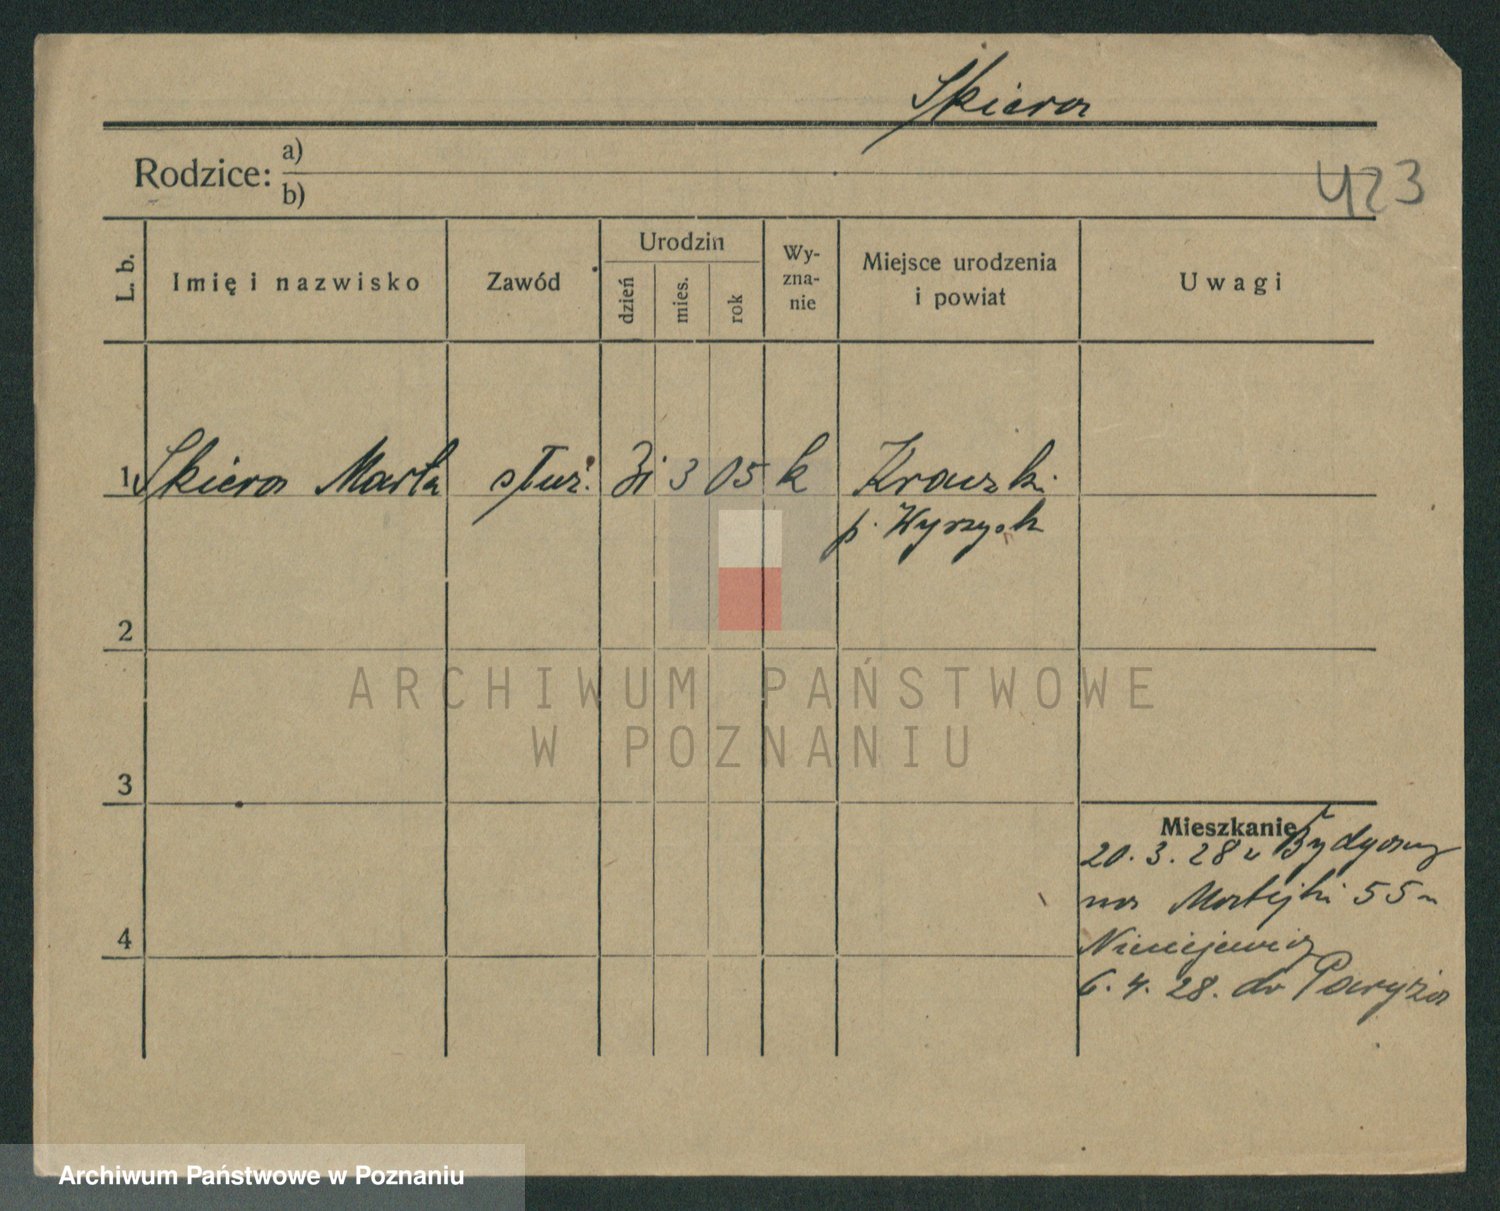 Skiera
Rodzice: a)
b)
423
L. b.
Imię i nazwisko
Zawód
Urodzin
dzień
mies.
rok
Wy-
zna-
nie
Miejsce urodzenia
i powiat
Uwagi
1 Skiera Marta służ. 31 3 05 k Kraczki
p. Wyrzysk
2
3
4
Mieszkanie
20. 3. 28 z Bydgoszcz
na Matejki 55
6. 4. 28. do Paryża
ARCHIWUM PAŃSTWOWE
W POZNANIU
Archiwum Państwowe w Poznaniu